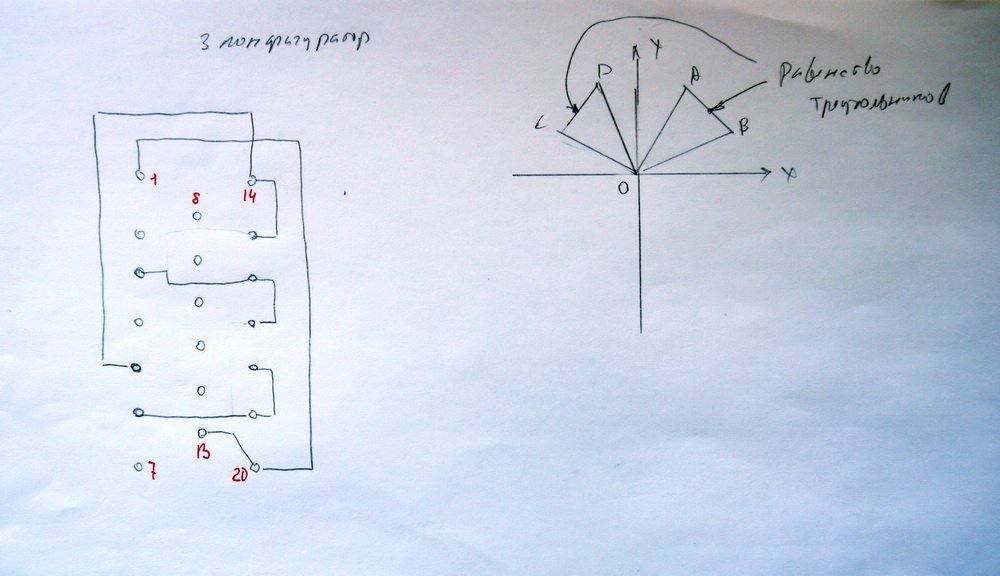 Y
D
A
Равенство
треугольников
C
B
X
O
1
8
14
13
7
20